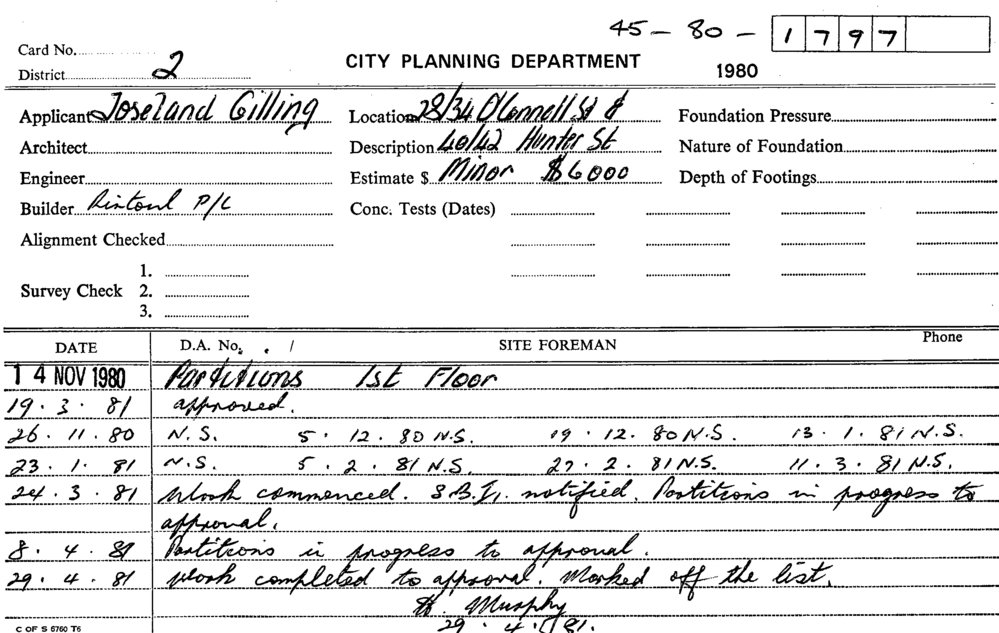 45 - 80 - 1797
Card No.
District 2
CITY PLANNING DEPARTMENT
1980
Applicant Joseland Gilling
Location 28/34 O'Connell St &
Foundation Pressure
Architect
Description 40/42 Hunter St
Nature of Foundation
Engineer
Estimate $ Minor $6000
Depth of Footings
Builder Rintoul P/L
Conc. Tests (Dates)
Alignment Checked
1.
Survey Check 2.
3.
DATE D.A. No. . / SITE FOREMAN Phone
14 NOV 1980 Partitions 1st Floor
19 . 3 . 81 approved.
26 . 11 . 80 N.S. 5 . 12 . 80 N.S. 19 . 12 . 80 N.S. 13 . 1 . 81 N.S.
23 . 1 . 81 N.S. 5 . 2 . 81 N.S. 27 . 2 . 81 N.S. 11 . 3 . 81 N.S.
24 . 3 . 81 Work commenced. S.B.I. notified. Partitions in progress to
approval.
8 . 4 . 81 Partitions in progress to approval.
29 . 4 . 81 Work completed to approval. Marked off the list.
Murphy
29 . 4 . 81.
C OF S 6760 T6